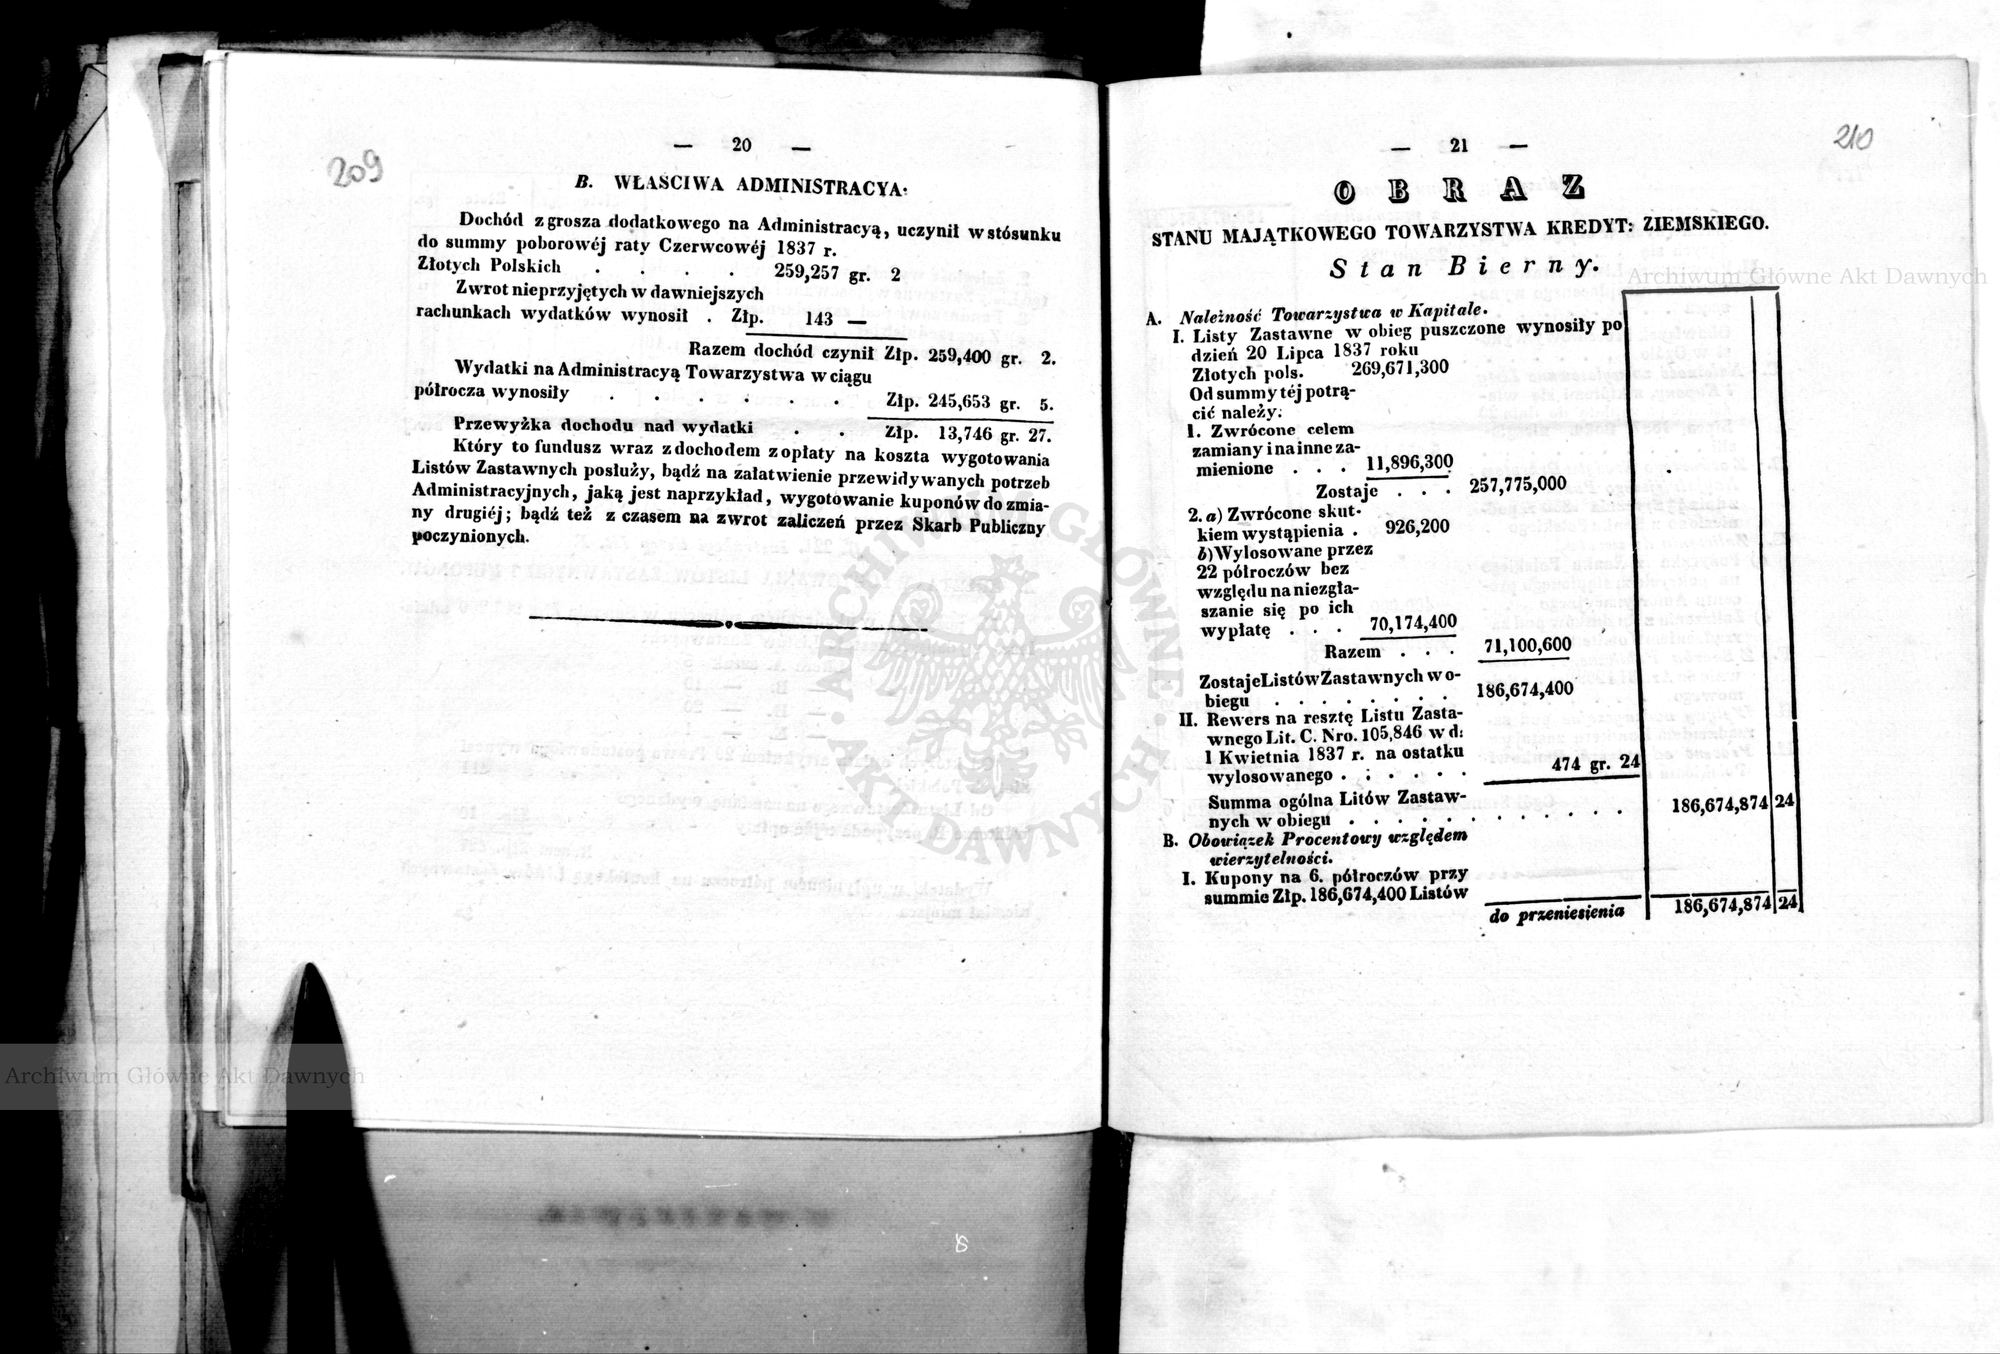 — 20 —
209
B. WŁASCIWA ADMINISTRACYA:
Dochód z grosza dodatkowego na Administracyą, uczynił w stósunku
do summy poborowéj raty Czerwcowéj 1837 r.
Złotych Polskich . . . . 259,257 gr. 2
Zwrot nieprzyjętych w dawniejszych
rachunkach wydatków wynosił . Złp. 143 —
Razem dochód czynił Złp. 259,400 gr. 2.
Wydatki na Administracyą Towarzystwa w ciągu
półrocza wynosiły . . . . . . Złp. 245,653 gr. 5.
Przewyżka dochodu nad wydatki . . Złp. 13,746 gr. 27.
Który to fundusz wraz z dochodem z opłaty na koszta wygotowania
Listów Zastawnych posłuży, bądź na załatwienie przewidywanych potrzeb
Administracyjnych, jaką jest naprzykład, wygotowanie kuponów do zmia-
ny drugiéj; bądź też z czasem na zwrot zaliczeń przez Skarb Publiczny
poczynionych.
— 21 —
210
OBRAZ
STANU MAJĄTKOWEGO TOWARZYSTWA KREDYT: ZIEMSKIEGO.
Stan Bierny.
A. Należność Towarzystwa w Kapitale.
I. Listy Zastawne w obieg puszczone wynosiły po
dzień 20 Lipca 1837 roku
Złotych pols. 269,671,300
Od summy téj potrą-
cić należy:
1. Zwrócone celem
zamiany i na inne za-
mienione . . . 11,896,300
Zostaje . . . 257,775,000
2. a) Zwrócone skut-
kiem wystąpienia . 926,200
b) Wylosowane przez
22 półroczów bez
względu na niezgła-
szanie się po ich
wypłatę . . . 70,174,400
Razem . . . 71,100,600
Zostaje Listów Zastawnych w o-
biegu . . . . . . . 186,674,400
II. Rewers na resztę Listu Zasta-
wnego Lit. C. Nro. 105,846 w d:
1 Kwietnia 1837 r. na ostatku
wylosowanego . . . . . . 474 gr. 24
Summa ogólna Litów Zastaw-
nych w obiegu . . . . . . . . . . . . 186,674,874 24
B. Obowiązek Procentowy względem
wierzytelności.
I. Kupony na 6. półroczów przy
summie Złp. 186,674,400 Listów
do przeniesienia 186,674,874 24
Archiwum Główne Akt Dawnych
Archiwum Główne Akt Dawnych
ARCHIWUM GŁÓWNE • AKT DAWNYCH •
8